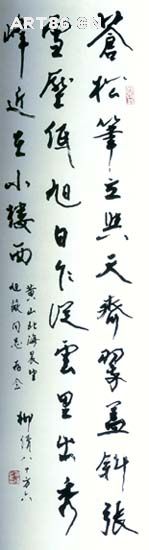 ART86.CN
蒼松筆立與天齊翠蓋斜張
雪壓低旭日乍從雲里出秀
峰近在小樓西
黄山北海晨望
同志存念
柳倩八十有六